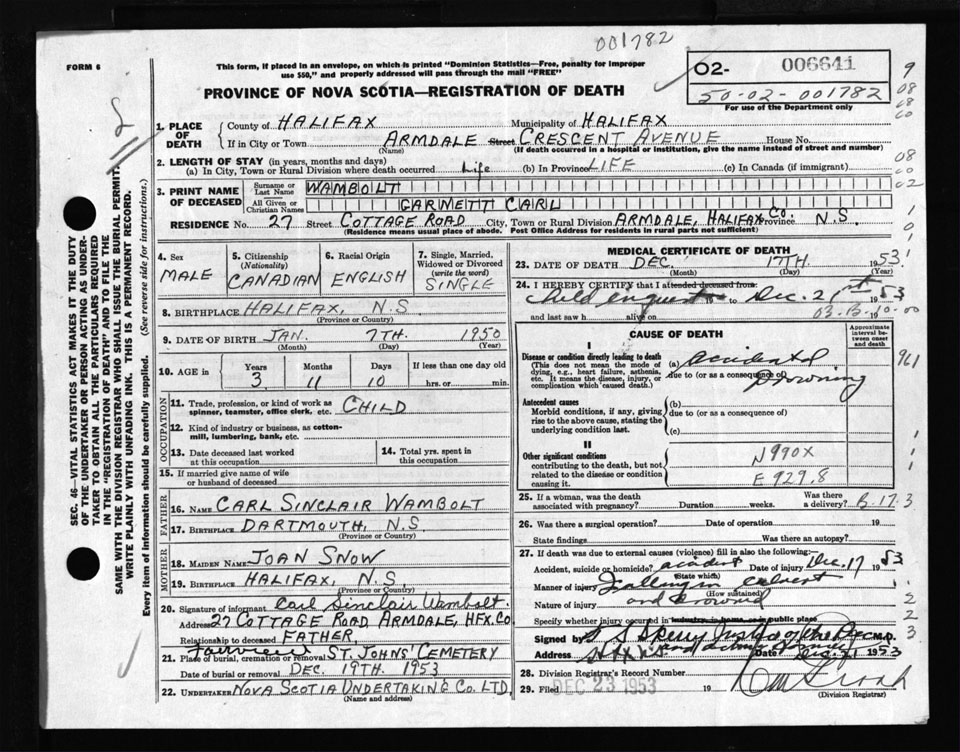 001782
FORM 6
This form, if placed in an envelope, on which is printed "Dominion Statistics—Free, penalty for improper
use $50," and properly addressed will pass through the mail "FREE"
02- 006641
50-02-001782
For use of the Department only
PROVINCE OF NOVA SCOTIA—REGISTRATION OF DEATH
1. PLACE OF DEATH
County of HALIFAX Municipality of HALIFAX
If in City or Town ARMDALE Street CRESCENT AVENUE House No.
(Name) (If death occurred in a hospital or institution, give the name instead of street and number)
2. LENGTH OF STAY (in years, months and days)
(a) In City, Town or Rural Division where death occurred Life (b) In Province LIFE (c) In Canada (if immigrant)
3. PRINT NAME OF DECEASED
Surname or Last Name WAMBOLT
All Given or Christian Names GARMETT CARL
RESIDENCE No. 27 Street COTTAGE ROAD City, Town or Rural Division ARMDALE, HALIFAX Co. Province N.S.
(Residence means usual place of abode. Post Office Address for residents in rural parts not sufficient)
4. Sex
MALE
5. Citizenship
(Nationality)
CANADIAN
6. Racial Origin
ENGLISH
7. Single, Married,
Widowed or Divorced
(write the word)
SINGLE
8. BIRTHPLACE HALIFAX, N.S.
(Province or Country)
9. DATE OF BIRTH JAN. 7TH. 1950
(Month) (Day) (Year)
10. AGE in
Years Months Days If less than one day old
3 11 10 hrs. or min.
OCCUPATION
11. Trade, profession, or kind of work as
spinner, teamster, office clerk, etc. CHILD
12. Kind of industry or business, as cotton-
mill, lumbering, bank, etc.
13. Date deceased last worked
at this occupation
14. Total yrs. spent in
this occupation
15. If married give name of wife
or husband of deceased
FATHER
16. NAME CARL SINCLAIR WAMBOLT
17. BIRTHPLACE DARTMOUTH, N.S
(Province or Country)
MOTHER
18. MAIDEN NAME JOAN SNOW
19. BIRTHPLACE HALIFAX, N.S.
(Province or Country)
20. Signature of informant Carl Sinclair Wambolt.
Address 27 COTTAGE ROAD, ARMDALE, HFX.CO.
Relationship to deceased FATHER
21. Place of burial, cremation or removal Fairview ST. JOHNS' CEMETERY
Date of burial or removal DEC. 19TH. 1953
22. UNDERTAKER NOVA SCOTIA UNDERTAKING CO. LTD.
(Name and address)
MEDICAL CERTIFICATE OF DEATH
23. DATE OF DEATH DEC. 17TH. 1953
(Month) (Day) (Year)
24. I HEREBY CERTIFY that I attended deceased from:
19 to Dec. 21st 1953
and last saw h alive on 19
CAUSE OF DEATH
Approximate interval between onset and death
I
Disease or condition directly leading to death
(This does not mean the mode of
dying, e.g., heart failure, asthenia,
etc. It means the disease, injury, or
complication which caused death.)
(a) accidental
due to (or as a consequence of)
Drowning
Antecedent causes
Morbid conditions, if any, giving
rise to the above cause, stating the
underlying condition last.
(b)
due to (or as a consequence of)
(c)
II
Other significant conditions
contributing to the death, but not
related to the disease or condition
causing it.
N990X
E929.8
25. If a woman, was the death
associated with pregnancy? Duration weeks. Was there
a delivery? B.17.3
26. Was there a surgical operation? Date of operation 19
State findings Was there an autopsy?
27. If death was due to external causes (violence) fill in also the following:
Accident, suicide or homicide? accident Date of injury Dec. 17 1953
(State which)
Manner of injury Falling in culvert
(How sustained)
Nature of injury and drowned
Specify whether injury occurred in industry, in home, or in public place
Signed by M.D.
Address Date 1953
28. Division Registrar's Record Number
29. Filed DEC 23 1953 19
(Division Registrar)
SEC. 46—VITAL STATISTICS ACT MAKES IT THE DUTY
OF THE UNDERTAKER OR PERSON ACTING AS UNDER-
TAKER TO OBTAIN ALL THE PARTICULARS REQUIRED
IN THE "REGISTRATION OF DEATH" AND TO FILE THE
SAME WITH THE DIVISION REGISTRAR WHO SHALL ISSUE THE BURIAL PERMIT.
WRITE PLAINLY WITH UNFADING INK. THIS IS A PERMANENT RECORD.
Every item of information should be carefully supplied. (See reverse side for instructions.)